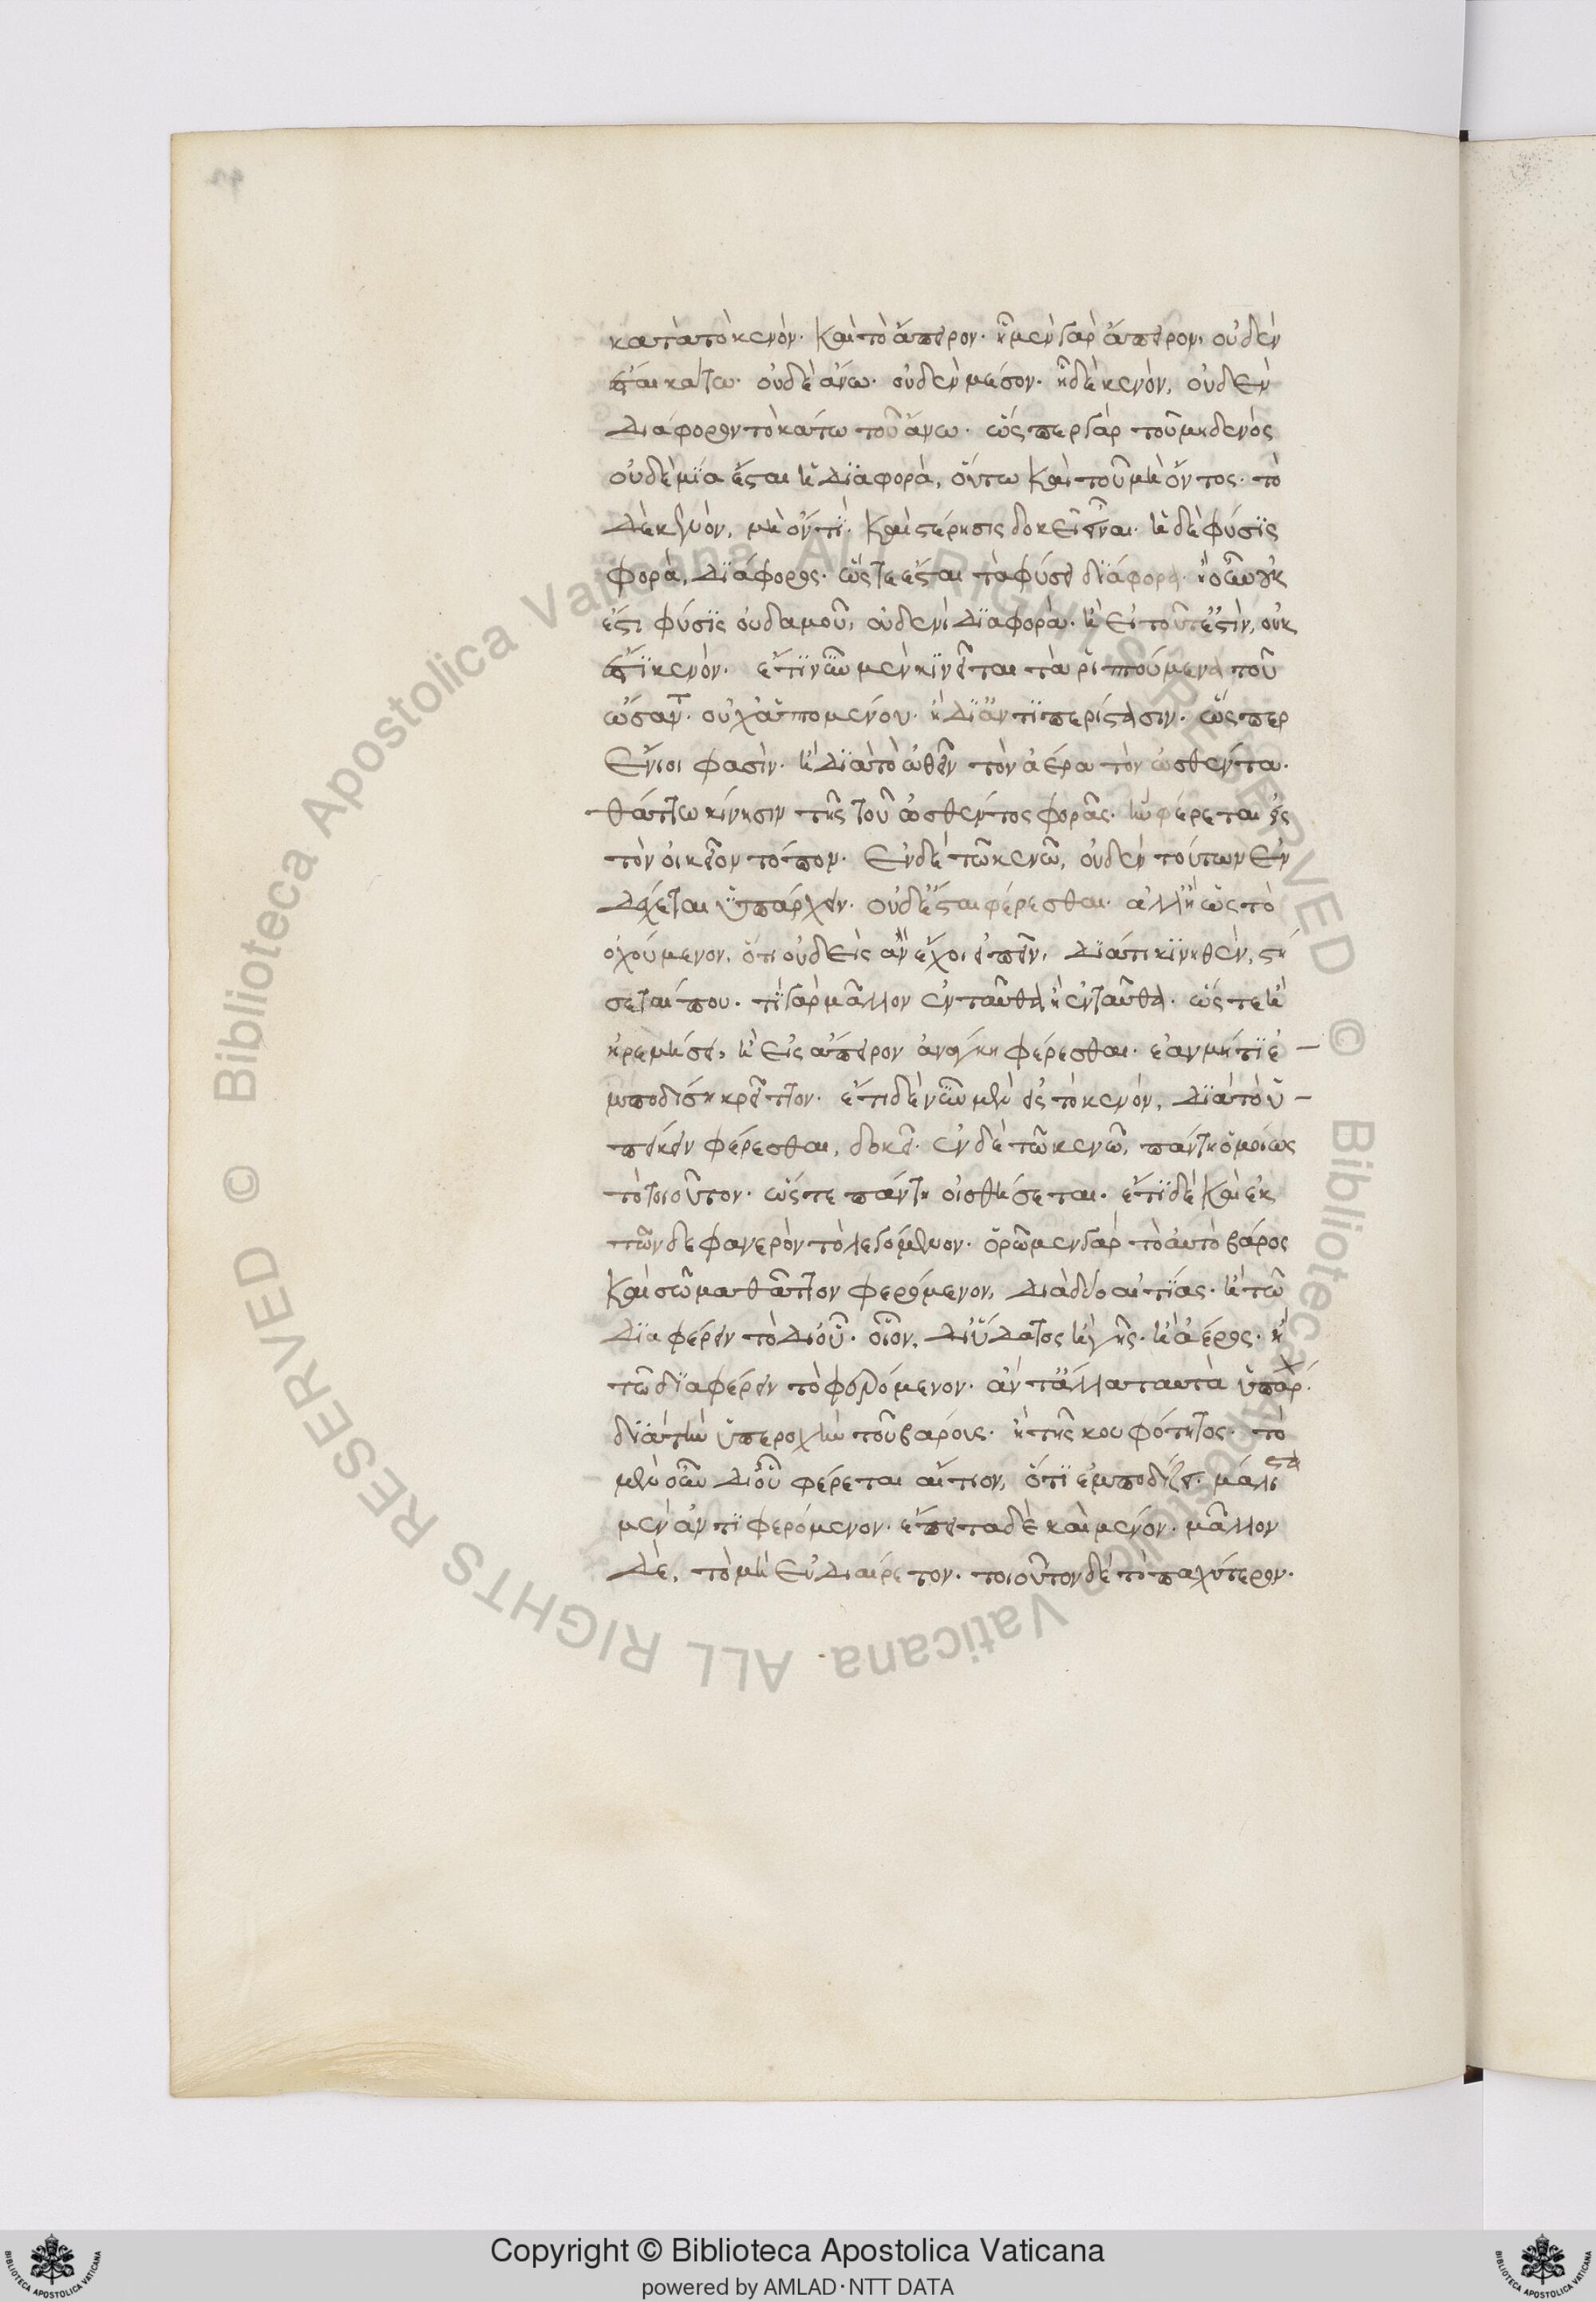 κατὰ τὸ κενόν· καὶ τὸ ἄπειρον· ᾗ μὲν γὰρ ἄπειρον, οὐδὲν
ἔσται κάτω· οὐδὲ ἄνω· οὐδὲν μέσον· ᾗ δὲ κενόν, οὐδὲν
διάφορον τὸ κάτω τοῦ ἄνω· ὥσπερ γὰρ τοῦ μηδενὸς
οὐδεμία ἔσται ἡ διαφορά, οὕτω καὶ τοῦ μὴ ὄντος· τὸ
δὲ κενόν, μὴ ὄν τι· καὶ στέρησις δοκεῖ εἶναι· ἡ δὲ φύσις
φορά, διάφορος· ὥστε ἔσται τὰ φύσει διάφορα· ἢ οὖν οὐκ
ἔστι φύσις οὐδαμοῦ, οὐδενὶ διαφορά· ἢ εἰ τοῦτ' ἔστιν, οὐκ
ἔστι κενόν· ἔτι νῦν μὲν κινεῖται τὰ ῥιπτούμενα τοῦ
ὤσαντ· οὐχ ἁπτομένου· ἢ δι' ἀντιπερίστασιν· ὥσπερ
ἔνιοί φασιν· ἢ διὰ τὸ ὠθεῖν τὸν ἀέρα τὸν ὠσθέντα·
θάττω κίνησιν τῆς τοῦ ὠσθέντος φορᾶς· ἣν φέρεται εἰς
τὸν οἰκεῖον τόπον· ἐν δὲ τῷ κενῷ, οὐδὲν τούτων ἐν
δέχεται ὑπάρχειν· οὐδ' ἔσται φέρεσθαι· ἀλλ' ἢ ὡς τὸ
ὀχούμενον, ὅτι οὐδεὶς ἂν ἔχοι εἰπεῖν, διὰ τί κινηθέν, στή
σεταί που· τί γὰρ μᾶλλον ἐνταῦθα ἢ ἐνταῦθα· ὥστε ἢ
ἠρεμήσει, ἢ εἰς ἄπειρον ἀνάγκη φέρεσθαι· ἐὰν μή τι ἐ –
μποδίσῃ κρεῖττον· ἔτι δὲ νῦν μὲν εἰς τὸ κενόν, διὰ τὸ ὑ –
πείκειν φέρεσθαι, δοκεῖ· ἐν δὲ τῷ κενῷ, πάντῃ ὁμοίως
τὸ τοιοῦτον· ὥστε πάντῃ οἰσθήσεται· ἔτι δὲ καὶ ἐκ
τῶνδε φανερὸν τὸ λεγόμενον· ὁρῶμεν γὰρ τὸ αὐτὸ βάρος
καὶ σῶμα θᾶττον φερόμενον, διὰ δύο αἰτίας· ἢ τῷ
διαφέρειν τὸ δι' οὗ· οἷον, δι' ὕδατος ἢ γῆς· ἢ ἀέρος· ἢ
τῷ διαφέρειν τὸ φερόμενον· ἂν τἄλλα ταυτὰ ὑπάρχ·
διὰ τὴν ὑπεροχὴν τοῦ βάρους· ἢ τῆς κουφότητος· τὸ
μὲν οὖν δι' οὗ φέρεται αἴτιον, ὅτι ἐμποδίζει· μάλιστα
μὲν ἀντιφερόμενον· ἔπειτα δὲ καὶ μένον· μᾶλλον
δέ, τὸ μὴ εὐδιαίρετον· τοιοῦτον δὲ τὸ παχύτερον·
Copyright © Biblioteca Apostolica Vaticana
powered by AMLAD·NTT DATA